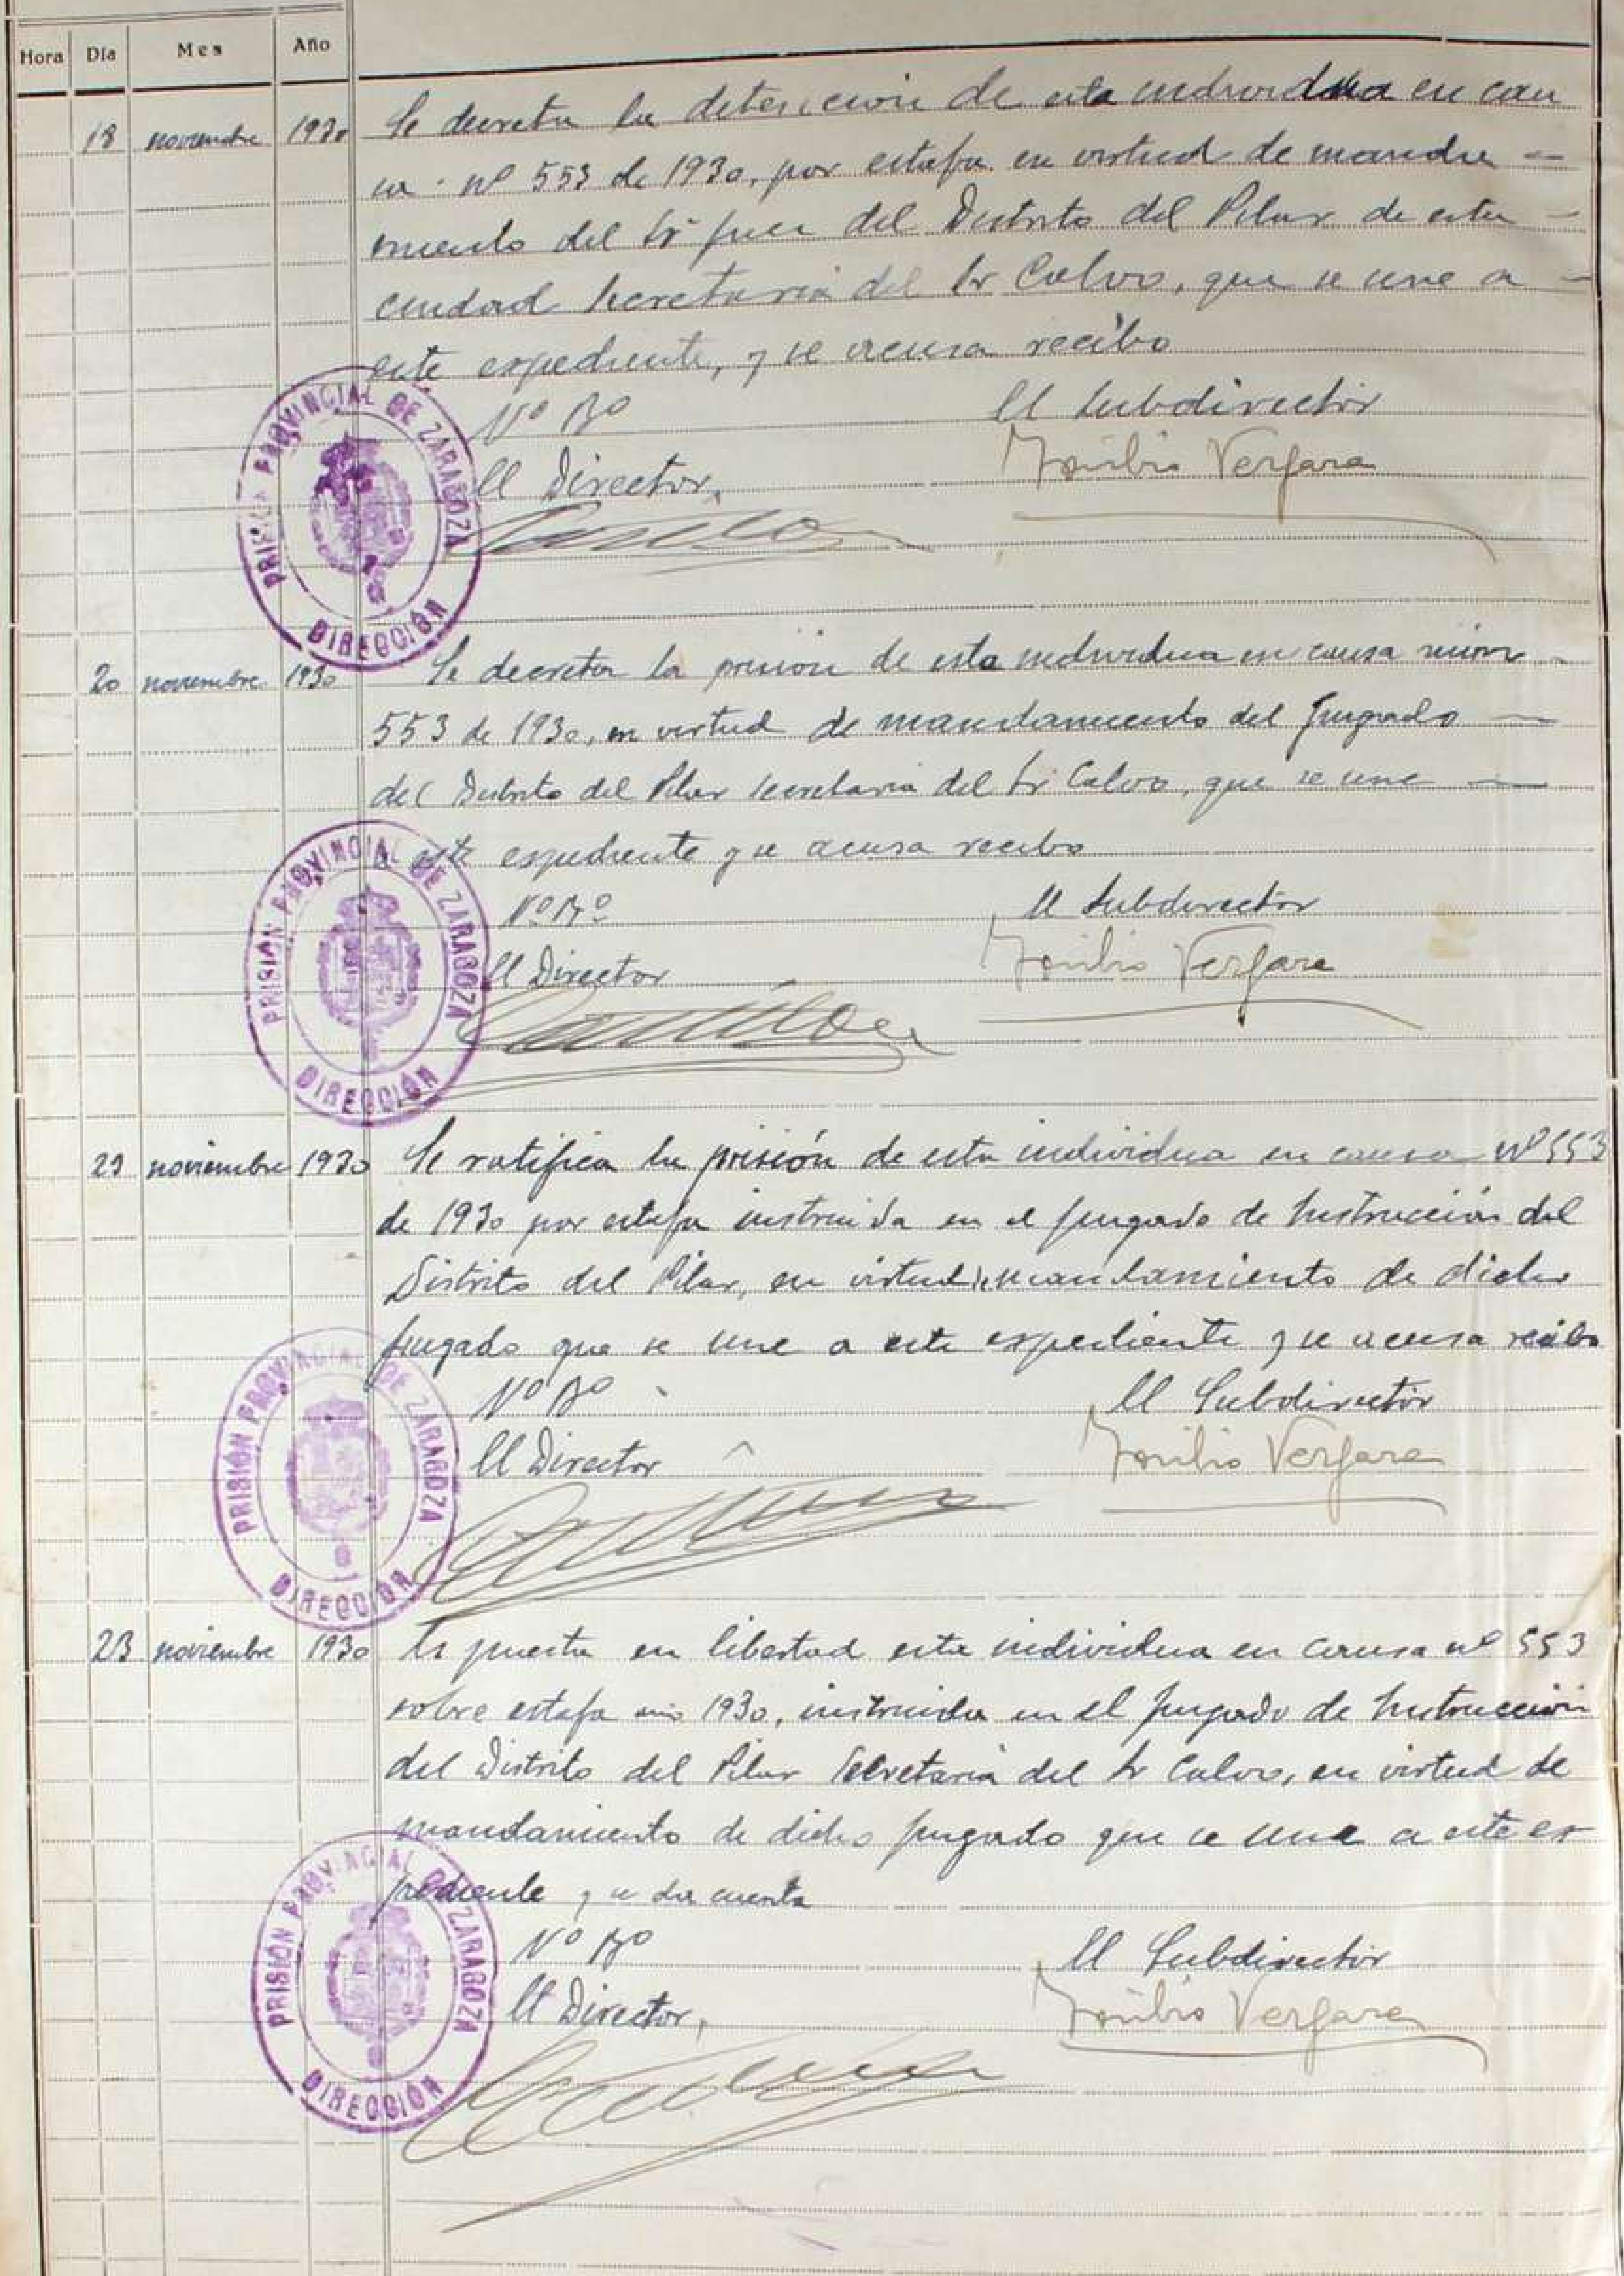 Hora Día Mes Año
18 noviembre 1930 Se decreta la detención de esta individua en cau
sa nº 553 de 1930, por estafa en virtud de manda -
miento del Sr Juez del Distrito del Pilar de esta -
ciudad Secretaria del Sr Calvo, que se une a -
este expediente, y se acusa recibo
Vº Bº El Subdirector
El Director,
Vergara
PRISIÓN PROVINCIAL DE ZARAGOZA
DIRECCIÓN
20 noviembre 1930 Se decreta la prisión de esta individua en causa núm
553 de 1930, en virtud de mandamiento del Juzgado -
del Distrito del Pilar Secretaria del Sr Calvo, que se une -
a este expediente y se acusa recibo
Vº Bº El Subdirector
El Director
Vergara
PRISIÓN PROVINCIAL DE ZARAGOZA
DIRECCIÓN
23 noviembre 1930 Se ratifica la prisión de esta individua en causa nº 553
de 1930 por estafa instruida en el Juzgado de Instrucción del
Distrito del Pilar, en virtud de mandamiento de dicho
Juzgado que se une a este expediente y se acusa recibo
Vº Bº El Subdirector
El Director
Vergara
PRISIÓN PROVINCIAL DE ZARAGOZA
DIRECCIÓN
23 noviembre 1930 Es puesta en libertad esta individua en causa nº 553
sobre estafa año 1930, instruida en el Juzgado de Instrucción
del Distrito del Pilar Secretaria del Sr Calvo, en virtud de
mandamiento de dicho Juzgado que se une a este ex
pediente y se da cuenta
Vº Bº El Subdirector
El Director,
Vergara
PRISIÓN PROVINCIAL DE ZARAGOZA
DIRECCIÓN